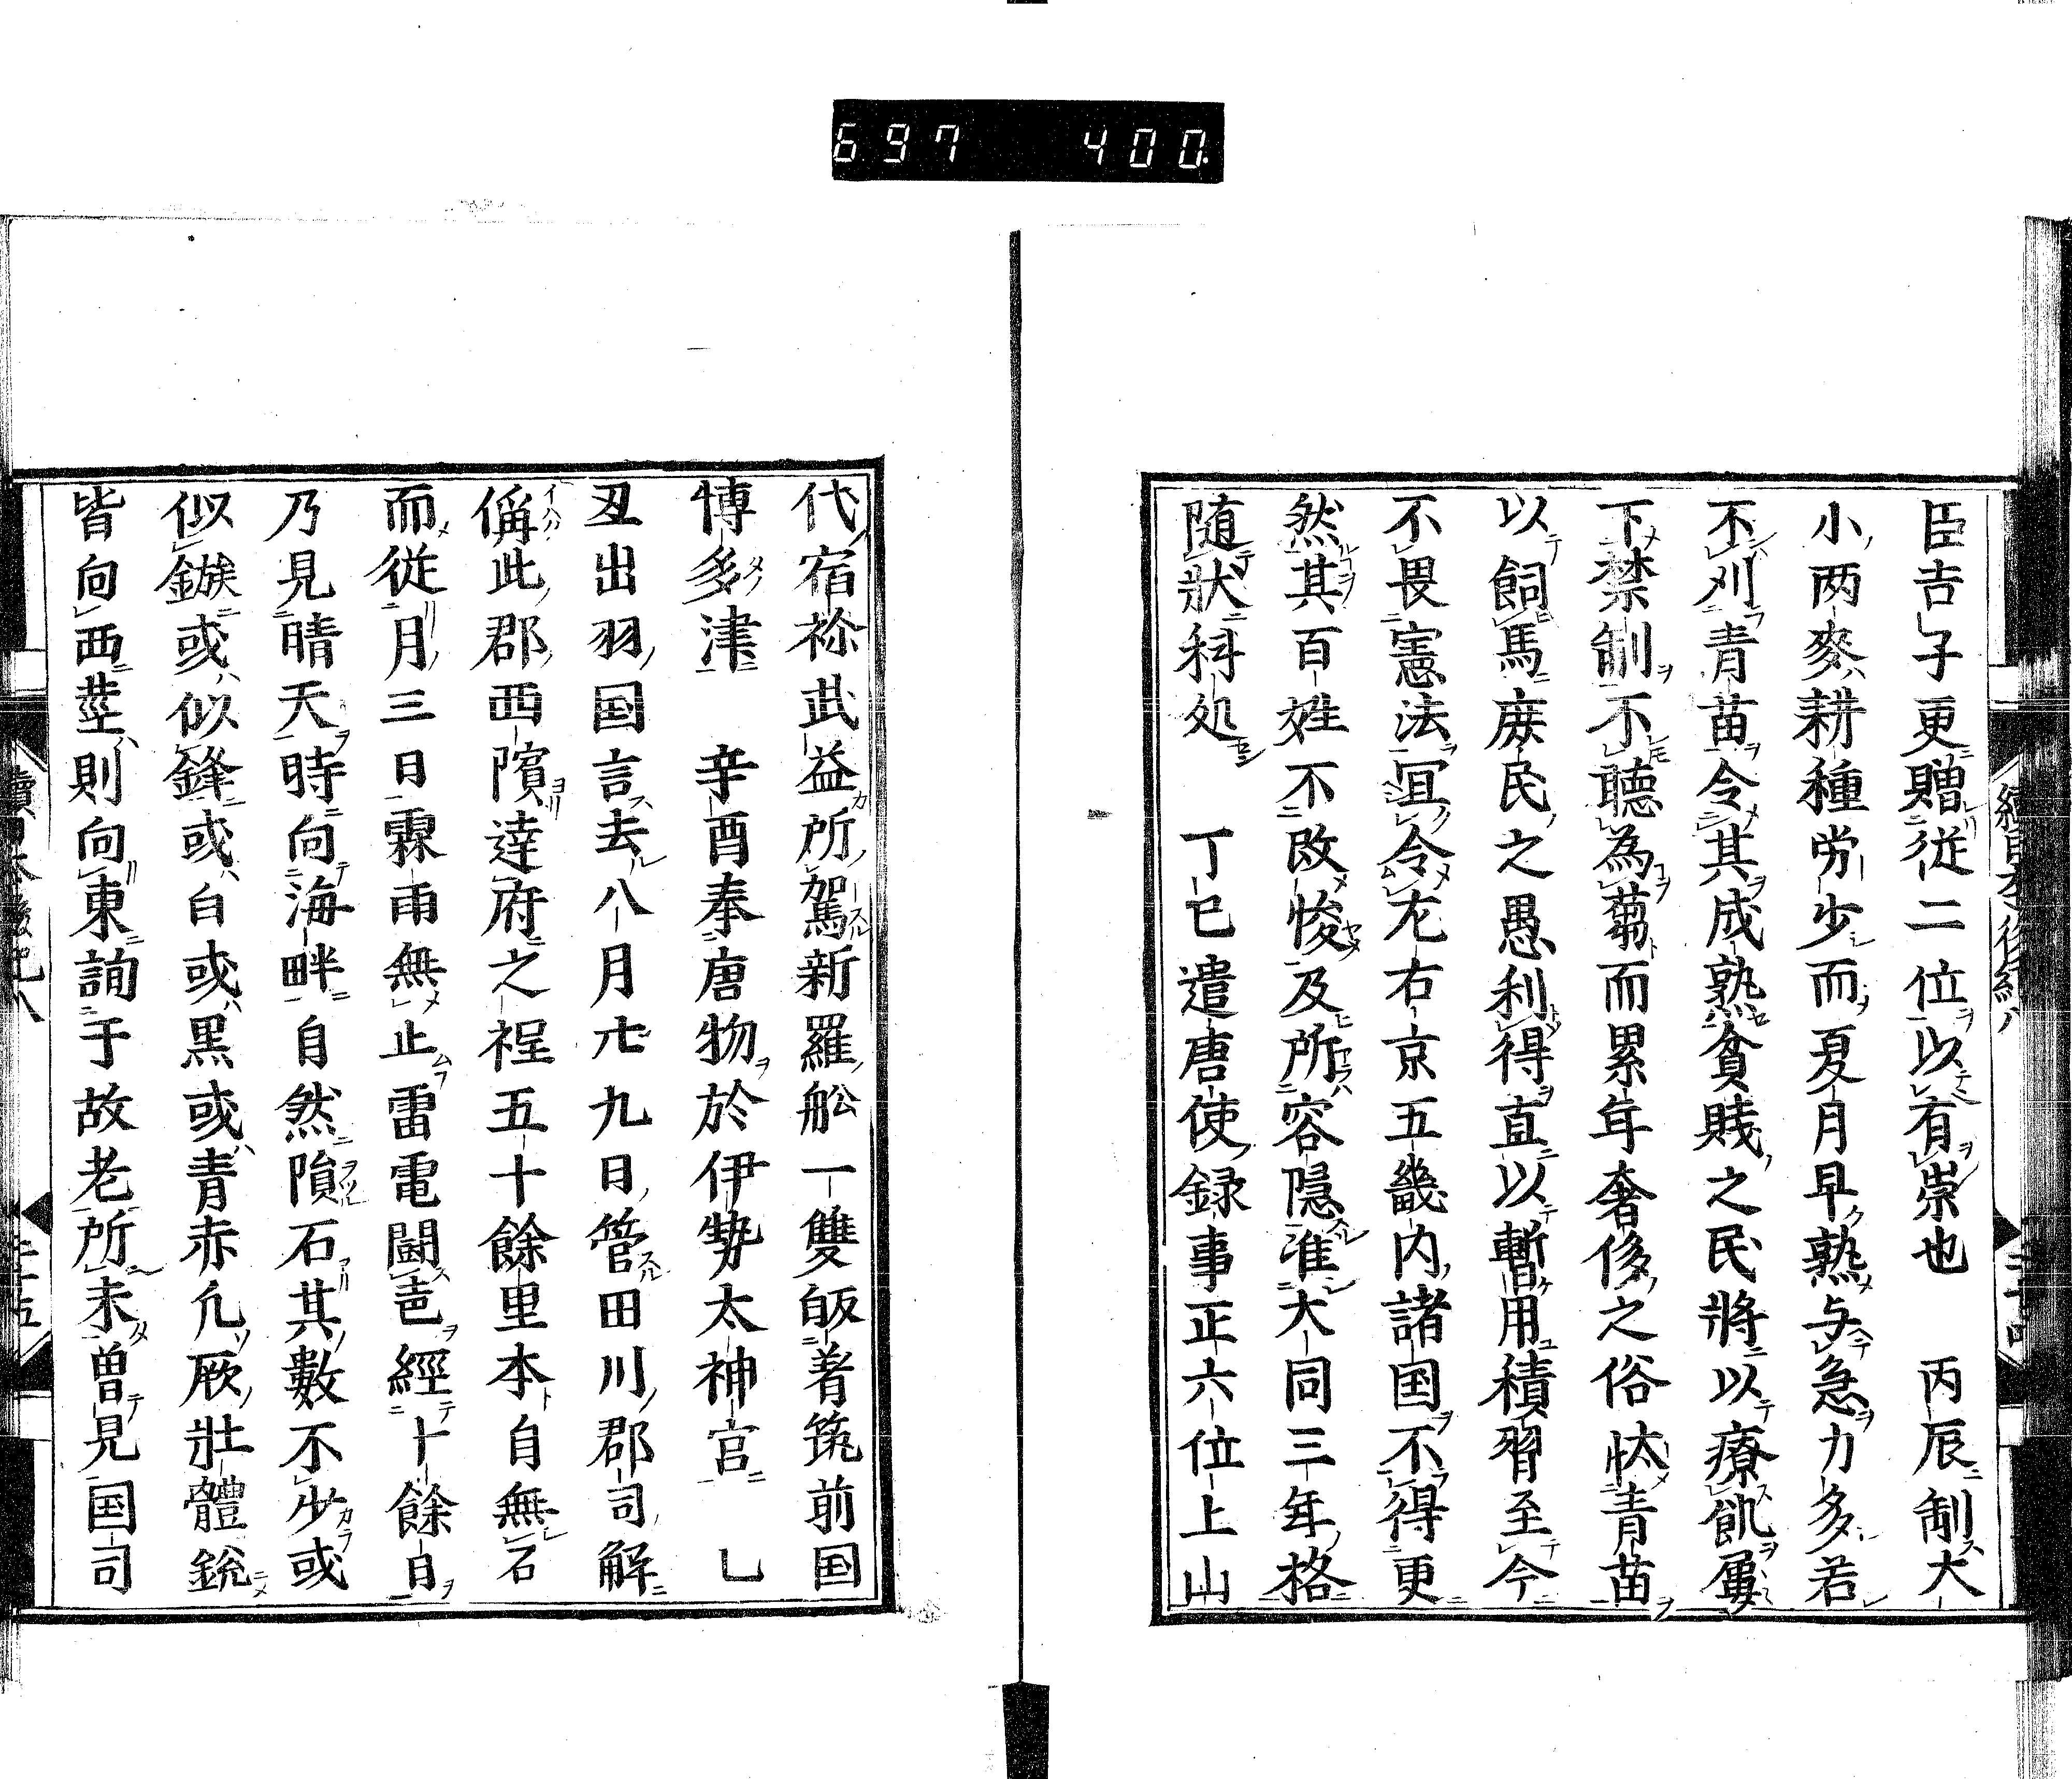 697 400
臣吉子更贈従二位以有崇也 丙辰制大
小両麥耕種労少而夏月早熟与急力多若
不刈青苗令其成熟貧賎之民將以療飢屢
下禁制不聴為蒭而累年奢侈之俗忲青苗
以飼馬庶民之愚利得直以暫用積習至今
不畏憲法冝令尤右京五畿内諸国不得更
然其百姓不改悛及所容隠准大同三年格
随狀科処 丁巳遣唐使録事正六位上山
代宿祢武益所駕新羅舩一雙皈着筑前国
博多津 辛酉奉唐物於伊勢太神宮 乚
丑出羽国言去八月廿九日管田川郡司解
偁此郡西濱達府之程五十餘里本自無石
而従月三日霖雨無止雷電闘声經十餘日
乃見晴天時向海畔自然隕石其數不少或
似鏃或似鋒或白或黒或青赤凢厥壯體鋭
皆向西莖則向東詢于故老所未曽見国司